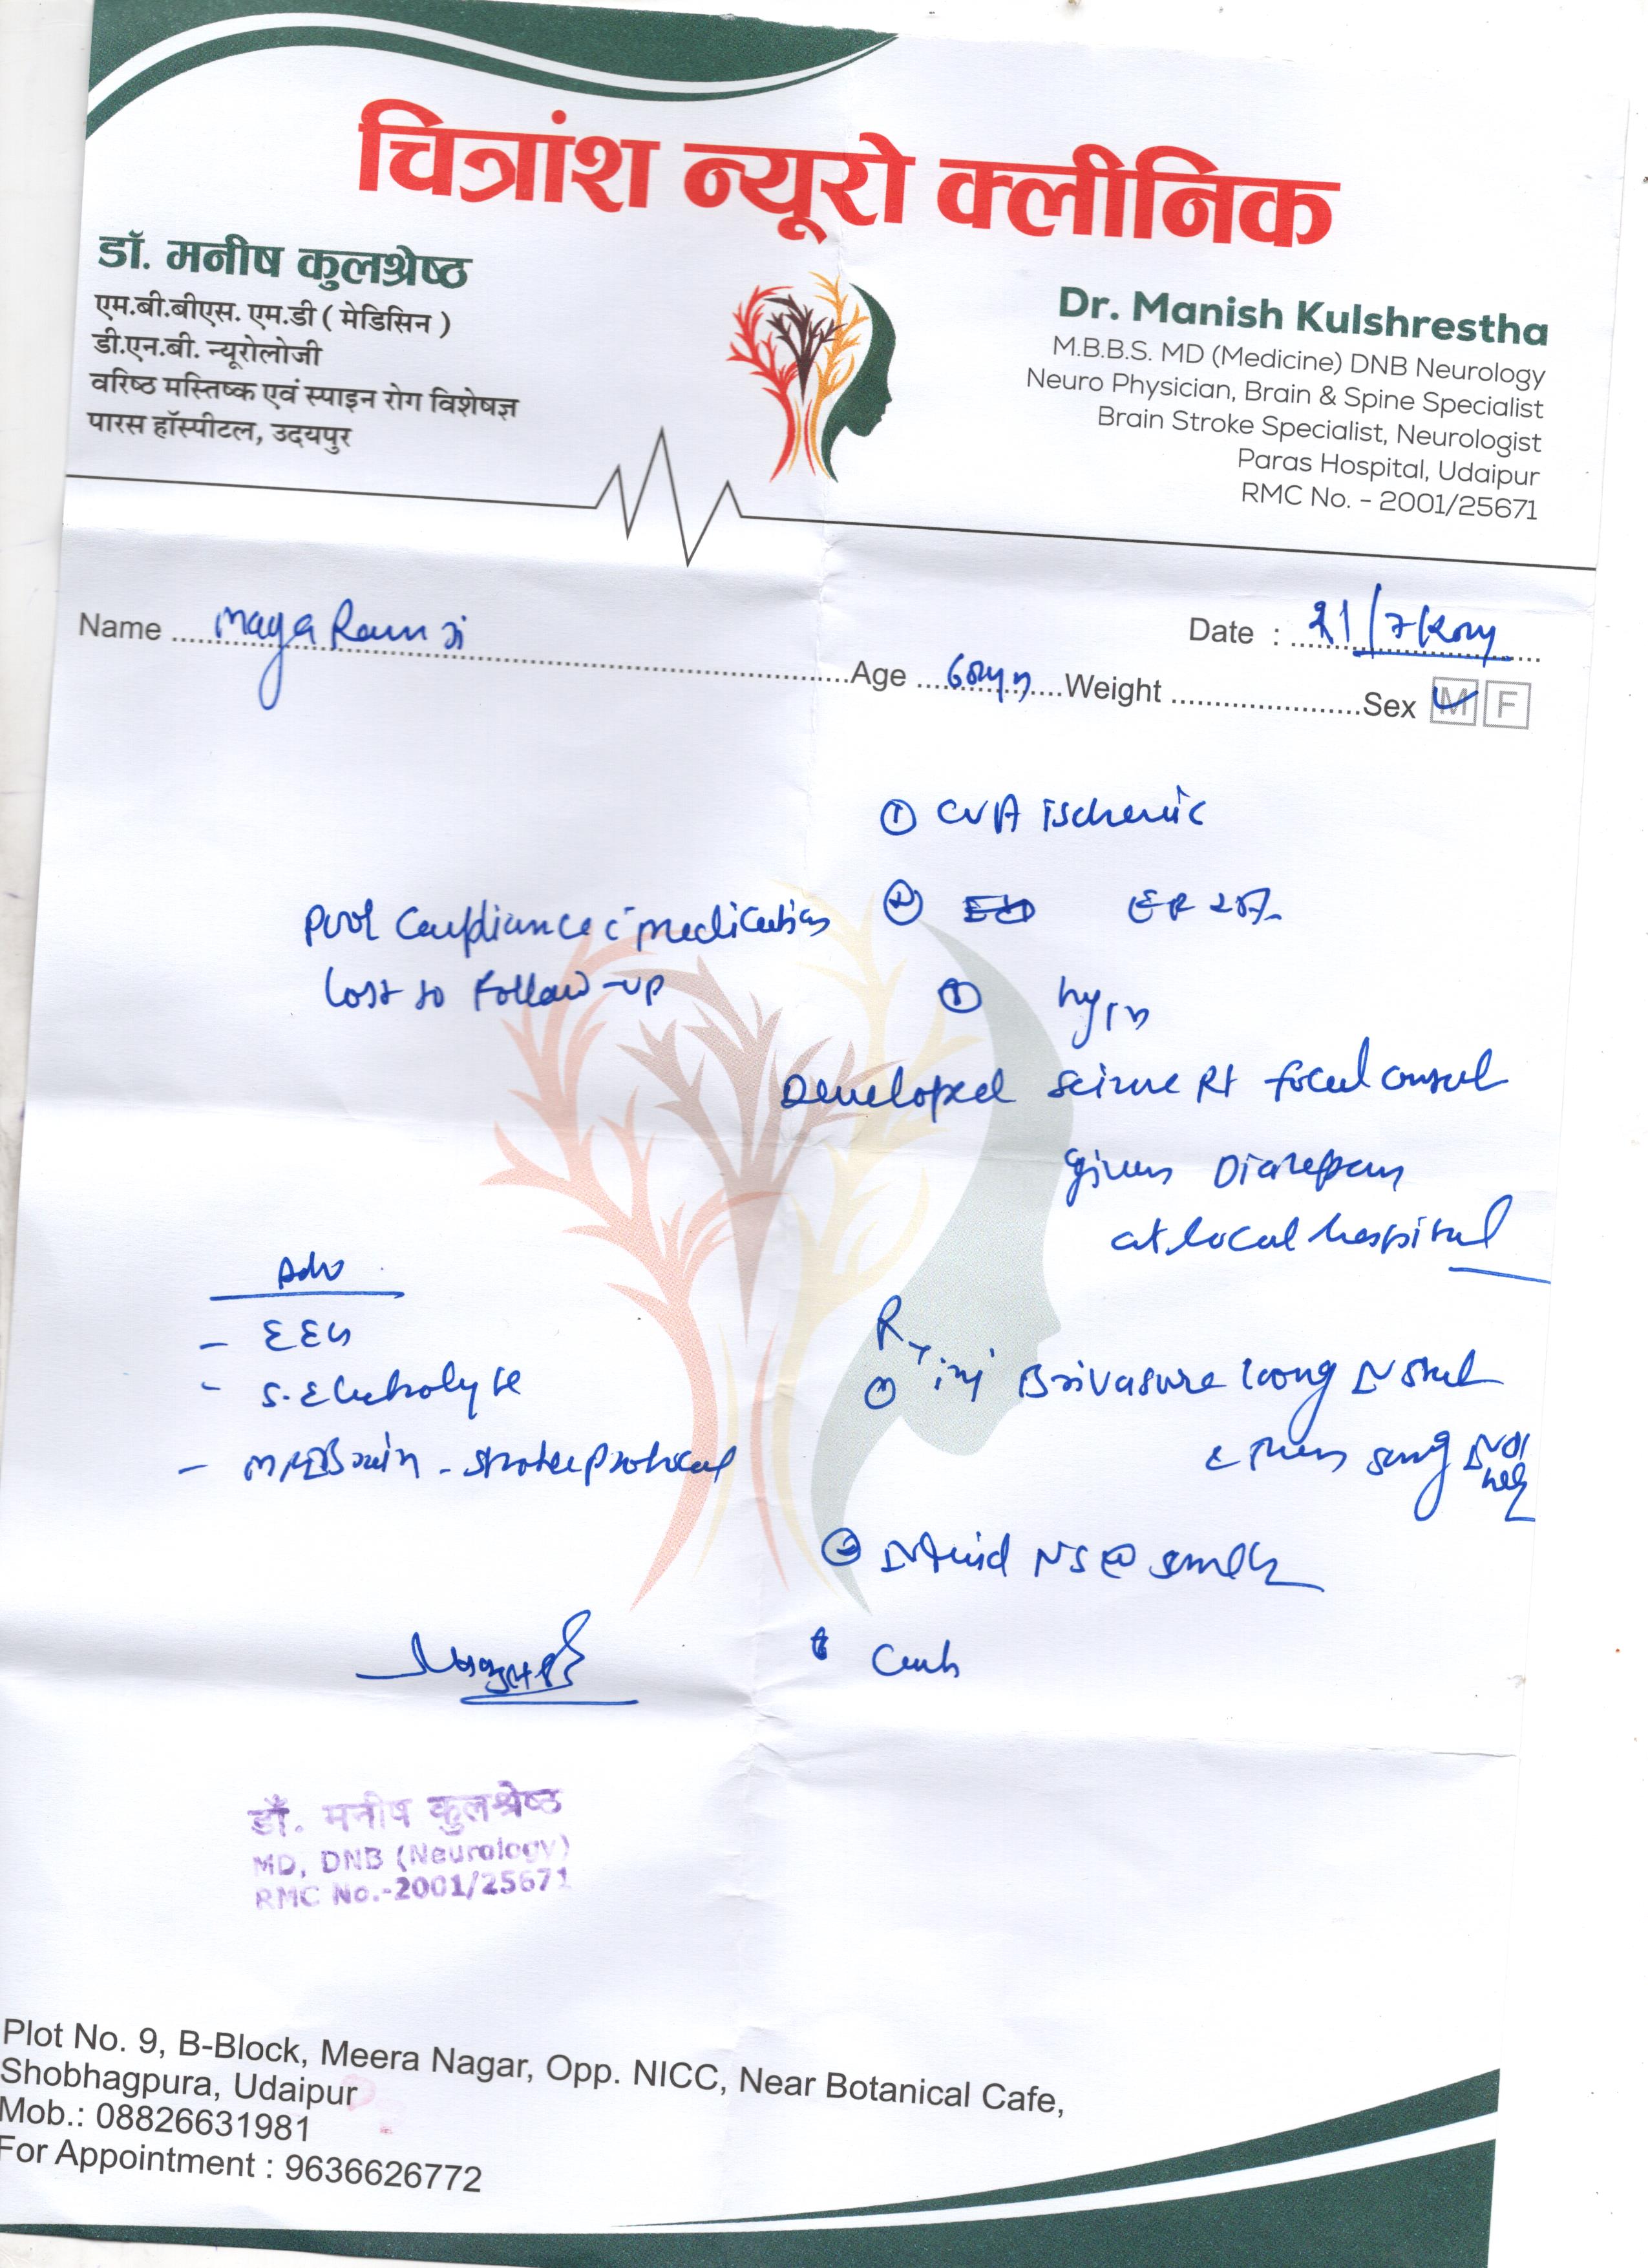 चित्रांश न्यूरो क्लीनिक
डॉ. मनीष कुलश्रेष्ठ
एम.बी.बीएस. एम.डी ( मेडिसिन )
डी.एन.बी. न्यूरोलोजी
वरिष्ठ मस्तिष्क एवं स्पाइन रोग विशेषज्ञ
पारस हॉस्पीटल, उदयपुर
Dr. Manish Kulshrestha
M.B.B.S. MD (Medicine) DNB Neurology
Neuro Physician, Brain & Spine Specialist
Brain Stroke Specialist, Neurologist
Paras Hospital, Udaipur
RMC No. - 2001/25671
Date :
Name Maya Ram Ji
Age 60 Weight Sex M F
① CVA ischemic
② EF
Poor Compliance c medication
lost to follow-up
Developed seizure Rt focal
given Diazepam
at local hospital
Adv
- EEG
- S. Electrolyte
- MRI Brain - stroke protocol
Rx
① inj Brivasure 100mg IV stat
② IV fluid NS @
डॉ. मनीष कुलश्रेष्ठ
MD, DNB (Neurology)
RMC No.-2001/25671
Plot No. 9, B-Block, Meera Nagar, Opp. NICC, Near Botanical Cafe,
Shobhagpura, Udaipur
Mob.: 08826631981
For Appointment : 9636626772